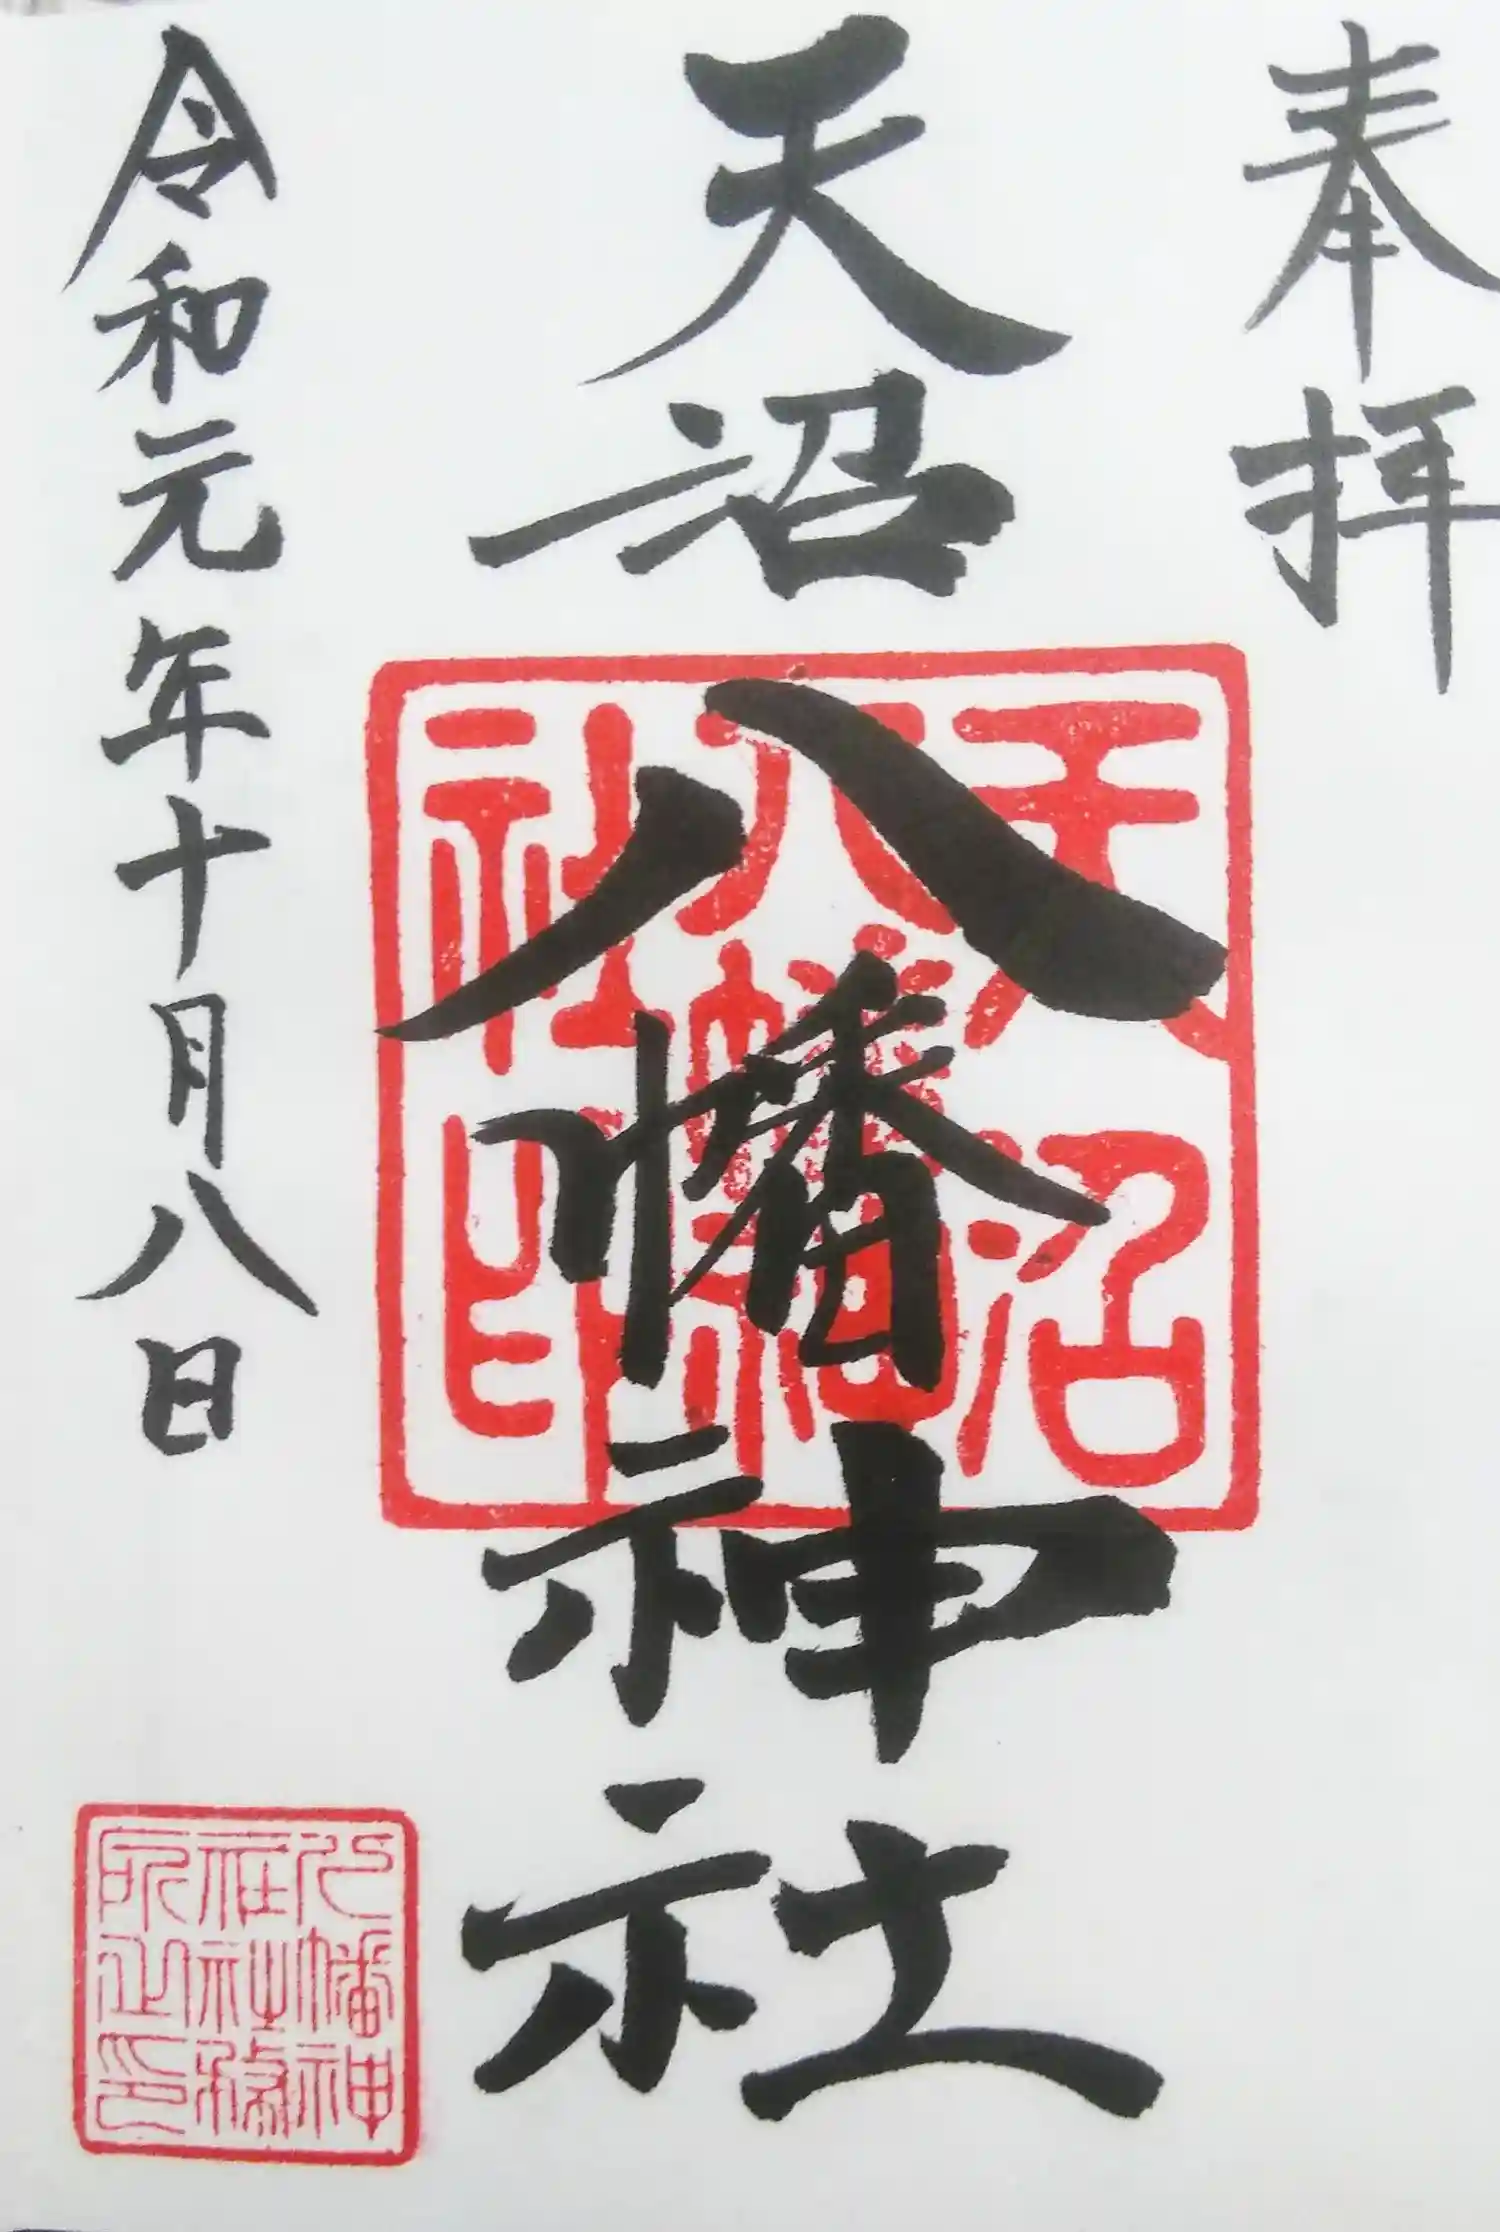 奉拝
天沼八幡神社
天沼
八幡神
社印
令和元年十月八日
八幡神
社社務
所之印